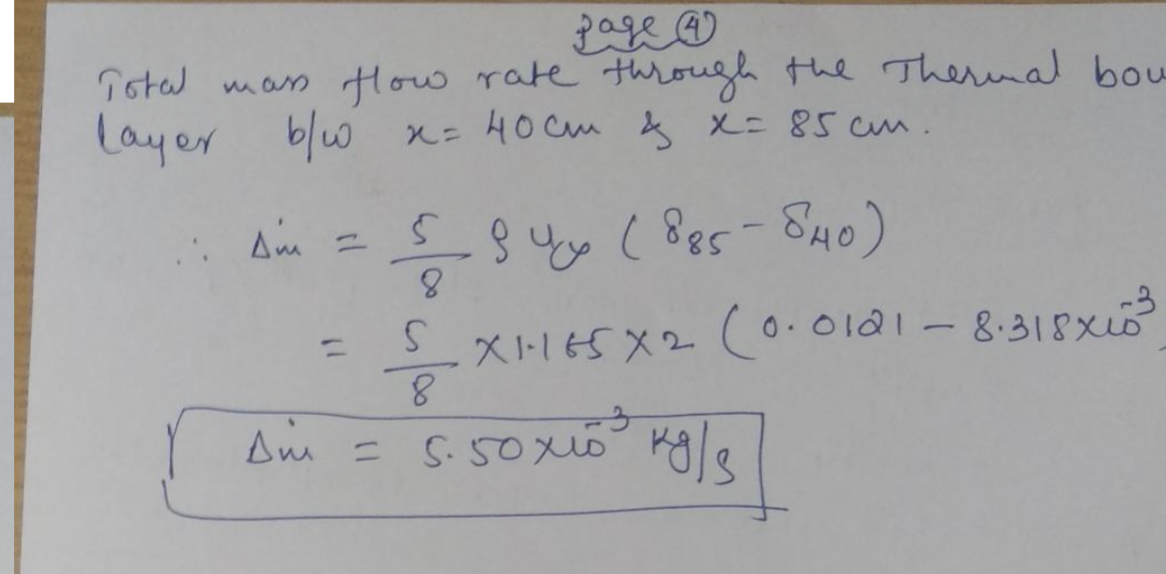 page ④
Total mass flow rate through the Thermal bou
Layer b/w x = 40 cm & x = 85 cm.
∴ Δṁ = 5/8 ρ u∞ ( δ85 - δ40 )
= 5/8 × 1.165 × 2 ( 0.0121 - 8.318×10⁻³ )
Δṁ = 5.50×10⁻³ kg/s